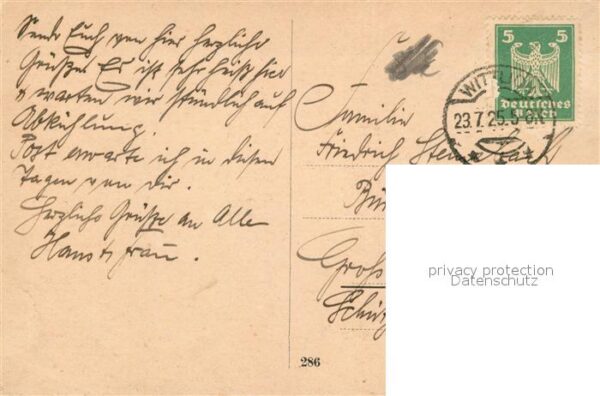 Sende Euch von hier herzliche
Grüße. Es ist sehr heiß hier
u warten wir stündlich auf
Abkühlung.
Post erwarte ich in diesen
Tagen von Dir.
Herzliche Grüße an Alle
Hans u Frau.
5 5
Deutsches
Reich
23.7.25.
Familie
Friedrich
Groß
286
privacy protection
Datenschutz